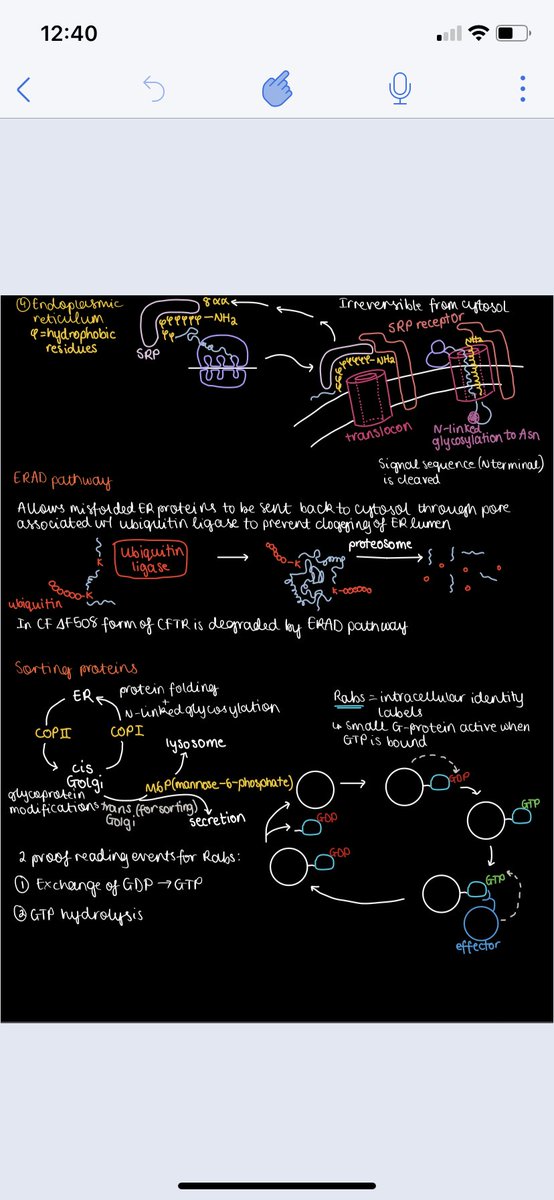 12:40
④ Endoplasmic
reticulum
φ = hydrophobic
residues
8αα
φφφφφφ-NH₂
φφ
SRP
Irreversible from cytosol
SRP receptor
NH₂
φφφφφ-NH₂
translocon
N-linked
glycosylation to Asn
Signal sequence (N terminal)
is cleaved
ERAD pathway
Allows misfolded ER proteins to be sent back to cytosol through pore
associated w/ ubiquitin ligase to prevent clogging of ER lumen
K
ubiquitin
ligase
K
ubiquitin
K
K
proteosome
In CF ΔF508 form of CFTR is degraded by ERAD pathway
Sorting proteins
ER
protein folding
+
N-linked glycosylation
COPII
COPI
cis
Golgi
lysosome
M6P (mannose-6-phosphate)
glycoprotein
modifications
trans (for sorting)
Golgi
secretion
Rabs = intracellular identity
labels
↳ small G-protein active when
GTP is bound
GDP
GTP
GDP
GDP
GTP
effector
2 proof reading events for Rabs:
① Exchange of GDP → GTP
② GTP hydrolysis